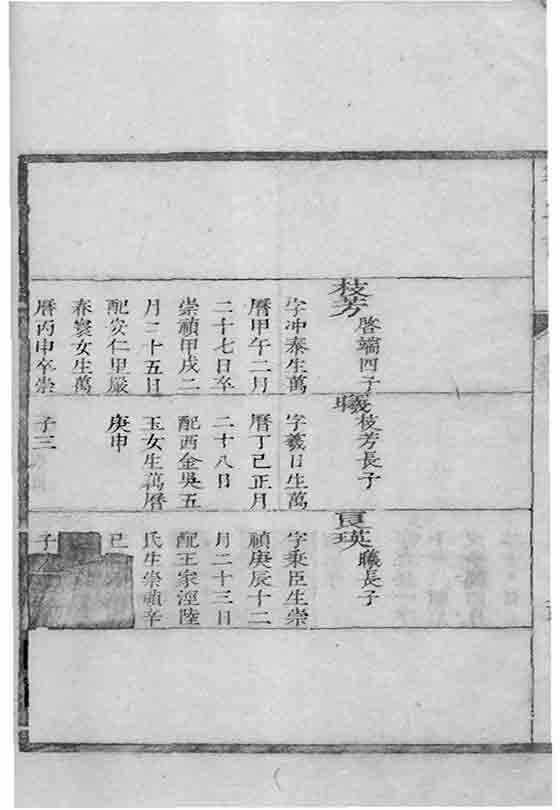 枝芳
啓端四子
字冲泰生萬
曆甲午二月
二十七日卒
崇禎甲戌二
月二十五日
配安仁里嚴
春寰女生萬
曆丙申卒崇
曦
枝芳長子
字羲日生萬
曆丁巳正月
二十八日
配西金吳五
玉女生萬曆
庚申
子三
瑛
曦長子
字乘臣生崇
禎庚辰十二
月二十三日
配王家涇陸
氏生崇禎辛
巳
子